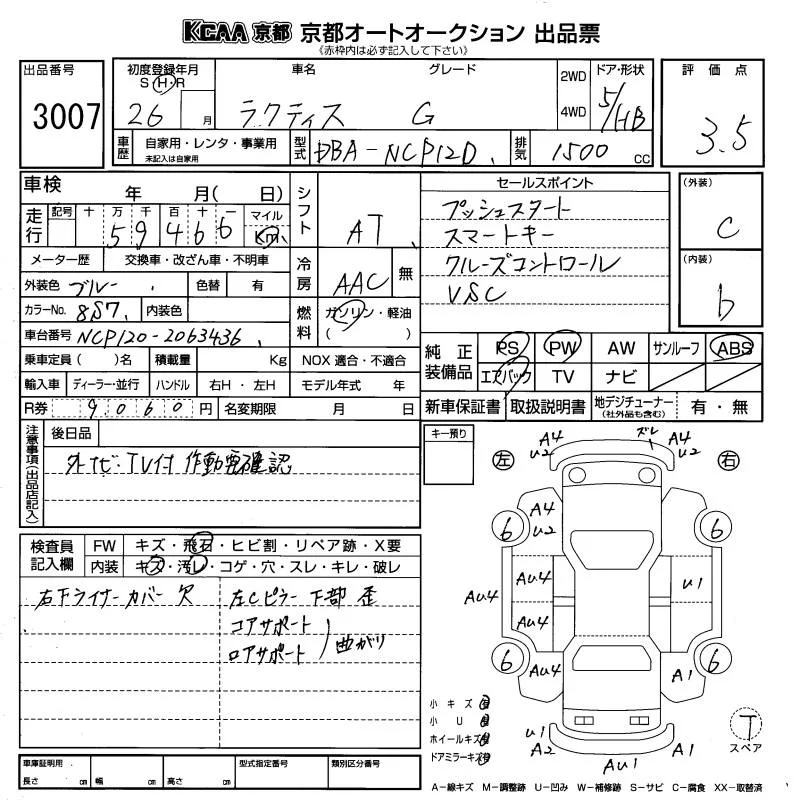 KCAA 京都 京都オートオークション 出品票
《赤枠内は必ず記入して下さい》
出品番号
3007
初度登録年月
S・H・R
26 月
車名 グレード
ラクティス G
2WD
4WD
ドア・形状
5/HB
評価点
3.5
車歴
自家用・レンタ・事業用
未記入は自家用
型式
DBA-NCP120
排気
1500 CC
車検 年 月( 日)
走行
記号 十 万 千 百 十 一 マイル
5 9 4 6 6 Km
メーター歴 交換車・改ざん車・不明車
外装色 ブルー 色替 有
カラーNo. 8S7 内装色
車台番号 NCP120-2063436
乗車定員( )名 積載量 Kg
輸入車 ディーラー・並行 ハンドル 右H・左H
R券 9060円 名変期限 月 日
シフト
AT
冷房
AAC 無
燃料
ガソリン・軽油
( )
NOX 適合・不適合
モデル年式 年
セールスポイント
プッシュスタート
スマートキー
クルーズコントロール
VSC
(外装)
C
(内装)
b
純正装備品
PS PW AW サンルーフ ABS
エアバック TV ナビ
新車保証書 取扱説明書 地デジチューナー
(社外品も含む)
有・無
注意事項(出品店記入)
後日品
外ナビ・TV付 作動要確認
キー預り
検査員記入欄
FW キズ・飛石・ヒビ割・リペア跡・X要
内装 キズ・汚レ・コゲ・穴・スレ・キレ・破レ
右下ライナーカバー欠
左Cピラー下部歪
コアサポート
ロアサポート
曲がり
左
右
A4
U2
ズレ
A4
U2
A4
U2
6
6
AU4
AU4
U1
AU4
6
6
AU4
A1
U1
A2
AU1
A1
小キズ
小U
ホイールキズ
ドアミラーキズ
T
スペア
車庫証明用 型式指定番号 類別区分番号
長さ cm 幅 cm 高さ cm
A-線キズ M-調整跡 U-凹み W-補修跡 S-サビ C-腐食 XX-取替済